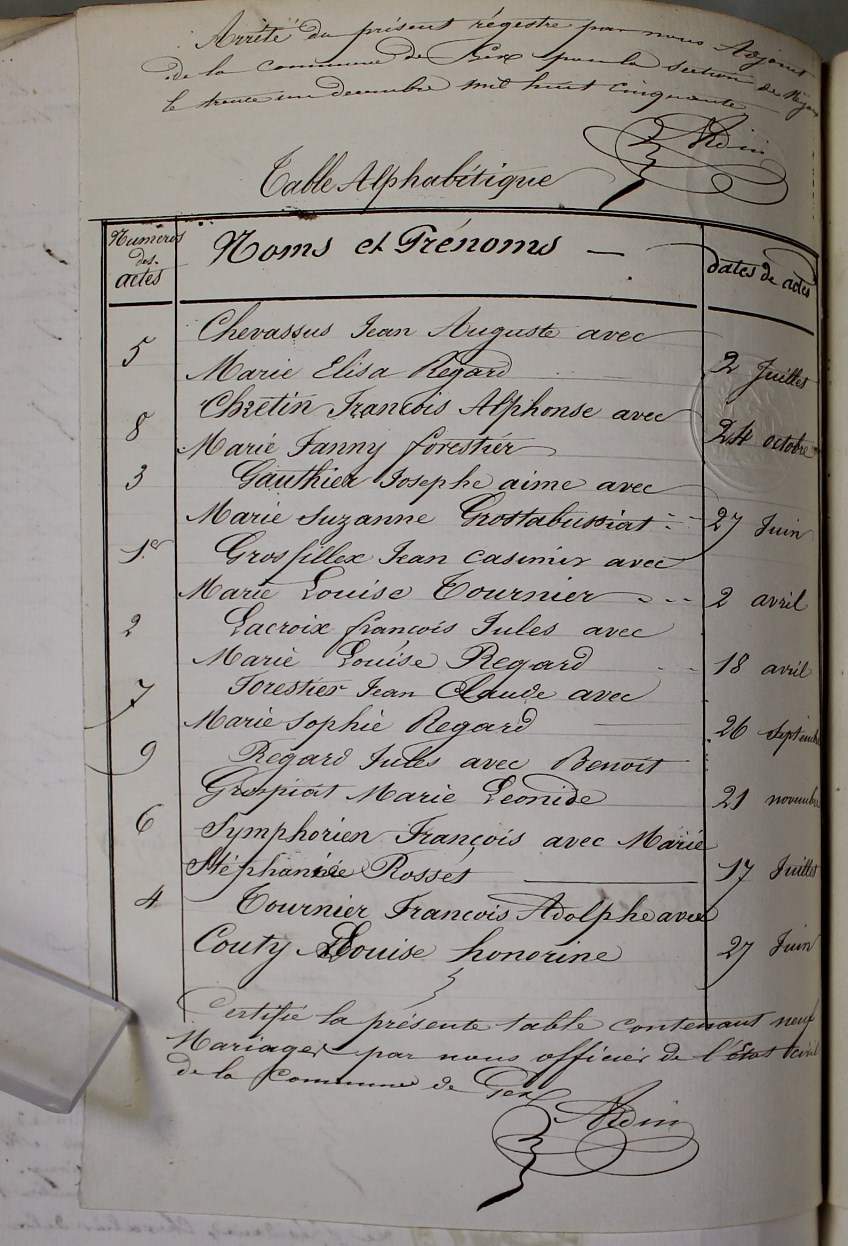 Arrêté du présent régistre par nous Adjoint
de la commune de Gex pour la section de
le trente un decembre mil huit cinquante
Table Alphabétique
Numeros des actes
Noms et Prénoms
dates de actes
5 Chevassus Jean Auguste avec
Marie Elisa Regard 2 Juillet
8 Chretin François Alphonse avec
Marie Fanny forestier 24 octobre
3 Gauthier Josephe aime avec
Marie Suzanne Grostabussiat 27 Juin
1er Grosfillex Jean Casimir avec
Marie Louise Tournier 2 avril
2 Lacroix françois Jules avec
Marie Louise Regard 18 avril
7 Forestier Jean Claude avec
Marie Sophie Regard 26 septembre
9 Regard Jules avec Benoit
Grospiat Marie Leonide 21 novembre
6 Symphorien François avec Marie
Stéphanie Rosset 17 Juillet
4 Tournier François Adolphe avec
Couty Louise honorine 27 Juin
Certifié la présente table contenant neuf
Mariages par nous officier de l'état civil
de la Commune de Gex